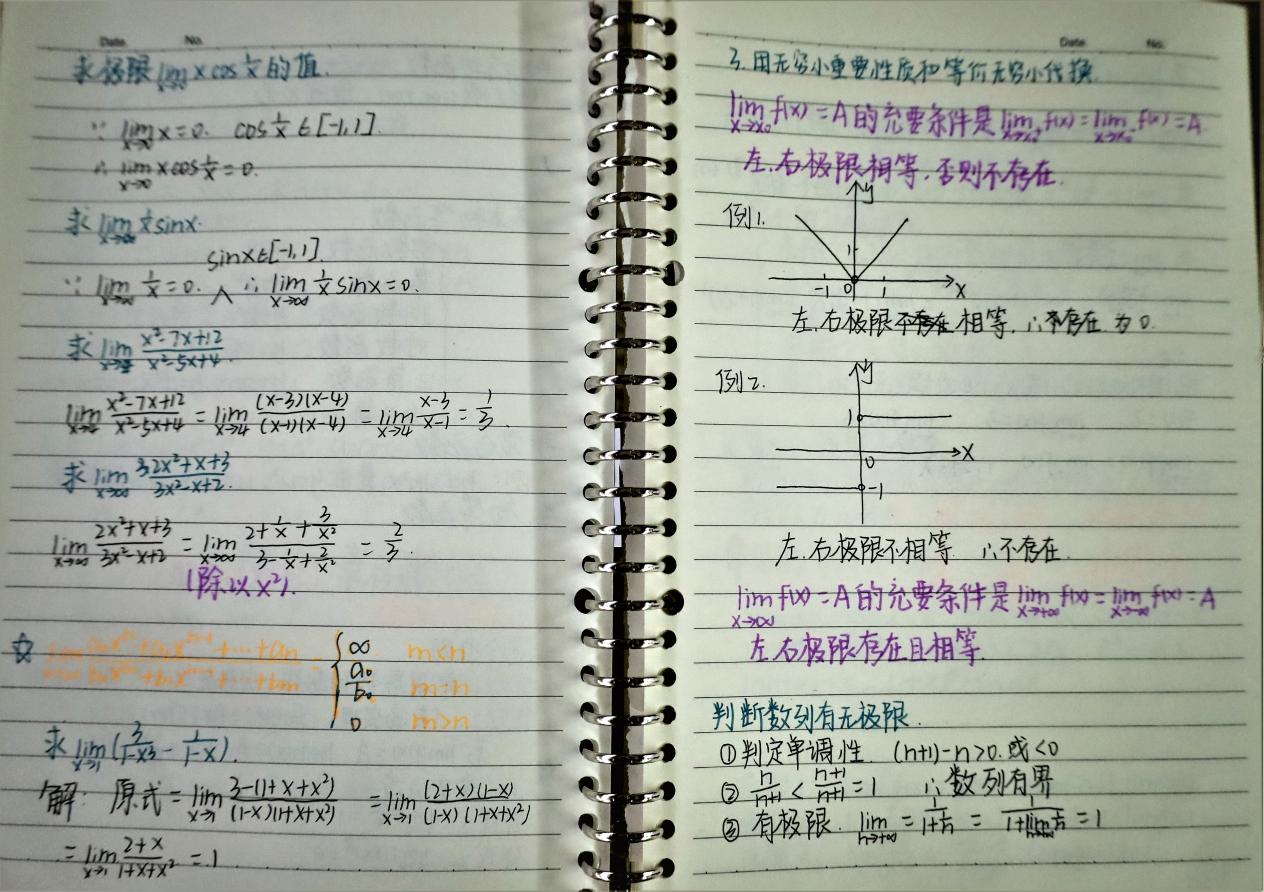 Date. No.
求极限 lim x→0 x cos 1/x 的值.
∵ lim x→0 x=0. cos 1/x ∈[-1,1].
∴ lim x→0 x cos 1/x =0.
求 lim x→∞ 1/x sinx.
sinx∈[-1,1].
∵ lim x→∞ 1/x =0. ∧ ∴ lim x→∞ 1/x sinx=0.
求 lim x→4 (x²-7x+12)/(x²-5x+4).
lim x→4 (x²-7x+12)/(x²-5x+4) = lim x→4 ((x-3)(x-4))/((x-1)(x-4)) = lim x→4 (x-3)/(x-1) = 1/3.
求 lim x→∞ (2x²+x+3)/(3x²-x+2).
lim x→∞ (2x²+x+3)/(3x²-x+2) = lim x→∞ (2+1/x+3/x²)/(3-1/x+2/x²) = 2/3.
(除以x²).
☆ lim x→∞ (a₀xⁿ+a₁xⁿ⁻¹+⋯+aₙ)/(b₀xᵐ+b₁xᵐ⁻¹+⋯+bₘ) = { ∞ m<n
a₀/b₀ m=n
0 m>n
求 lim x→1 (3/(1-x³) - 1/(1-x)).
解: 原式= lim x→1 (3-(1+x+x²))/((1-x)(1+x+x²)) = lim x→1 ((2+x)(1-x))/((1-x)(1+x+x²))
= lim x→1 (2+x)/(1+x+x²) =1
Date. No.
3. 用无穷小重要性质和等价无穷小代换.
lim x→x₀ f(x)=A的充要条件是 lim x→x₀⁺ f(x)= lim x→x₀⁻ f(x)=A.
左、右极限相等,否则不存在.
例1.
y
1
-1 0 1 x
左、右极限不存在相等, ∴不存在 为0.
例2.
y
1
0 x
-1
左、右极限不相等. ∴不存在.
lim x→∞ f(x)=A的充要条件是 lim x→+∞ f(x)= lim x→-∞ f(x)=A
左右极限存在且相等.
判断数列有无极限.
①判定单调性. (n+1)-n>0.或<0
② n/(n+1) < (n+1)/(n+1) =1 ∴数列有界
③有极限. lim n→+∞ = 1/(1+1/n) = 1/(1+lim 1/n) =1